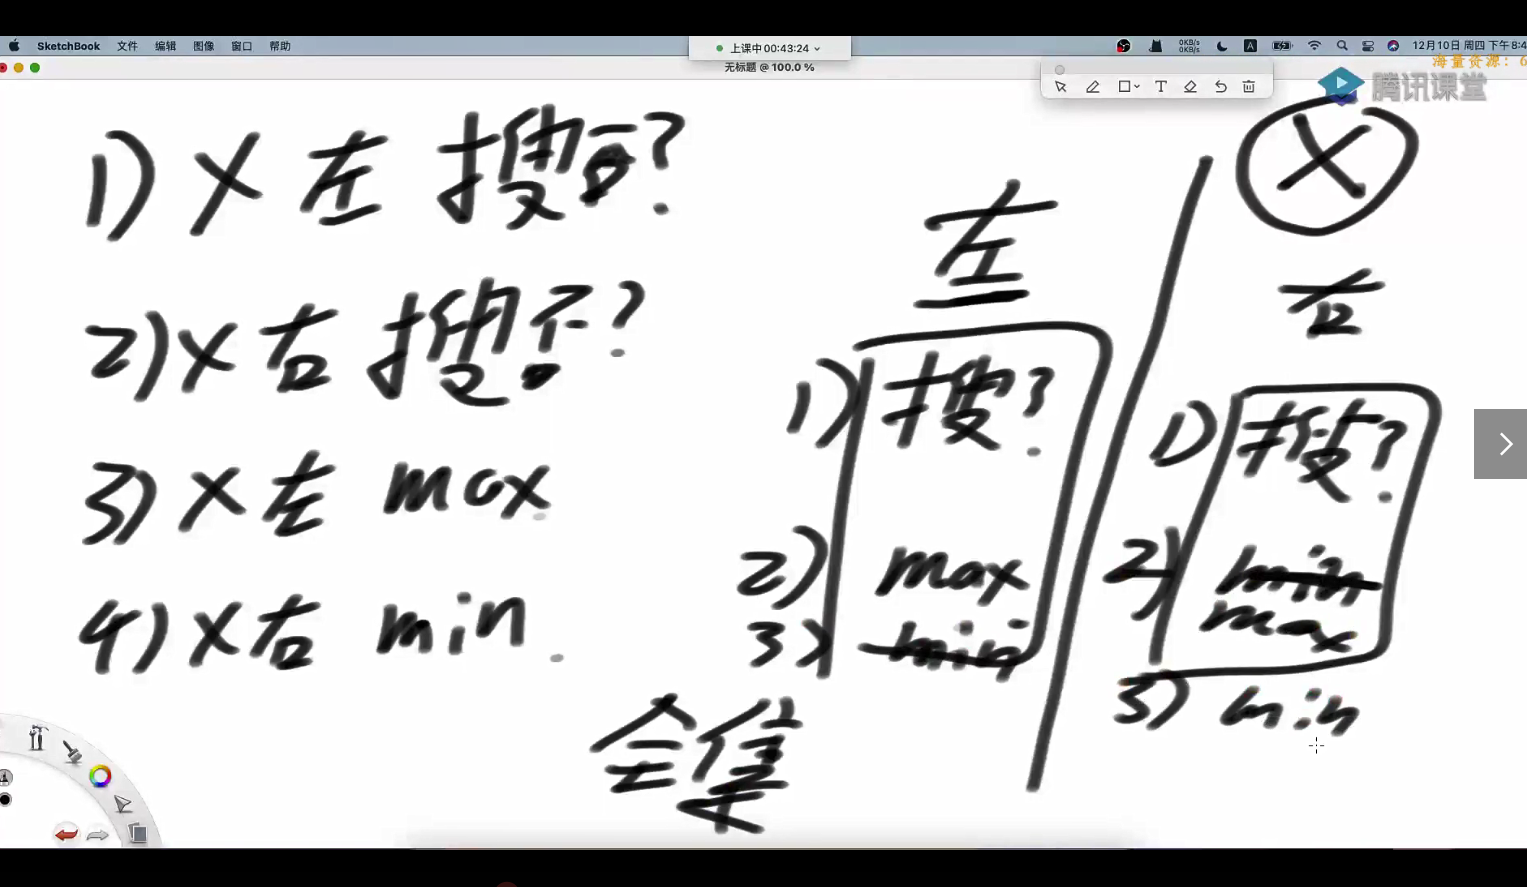 SketchBook 文件 编辑 图像 窗口 帮助
上课中 00:43:24
0KB/s
0KB/s
A
12月10日 周四 下午8:4
无标题 @ 100.0 %
海量资源：6
腾讯课堂
T
1) X 左 搜?
2) X 右 搜?
3) X 左 max
4) X 右 min
全集
左
1) 搜?
2) max
3) min
X
右
1) 搜?
2) min
max
3) min